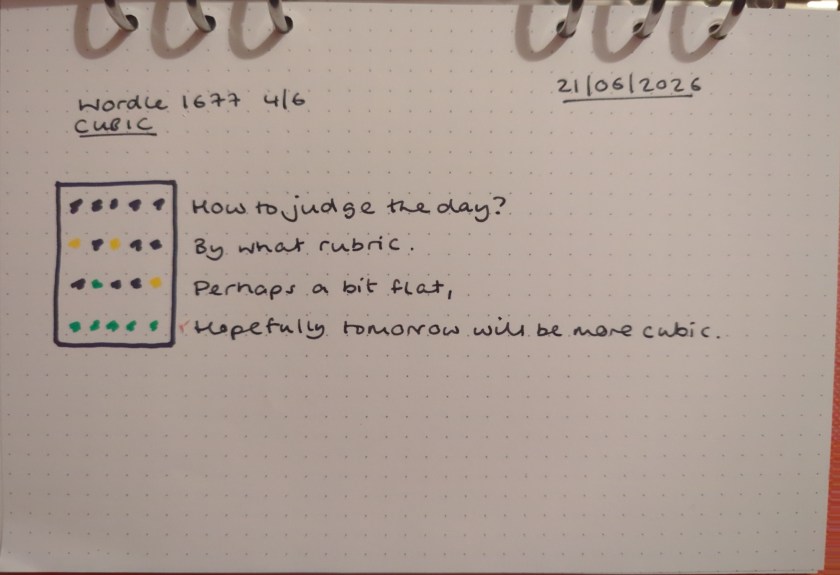 Wordle 1677 4/6
21/06/2026
CUBIC
How to judge the day?
By what rubric.
Perhaps a bit flat,
Hopefully tomorrow will be more cubic.